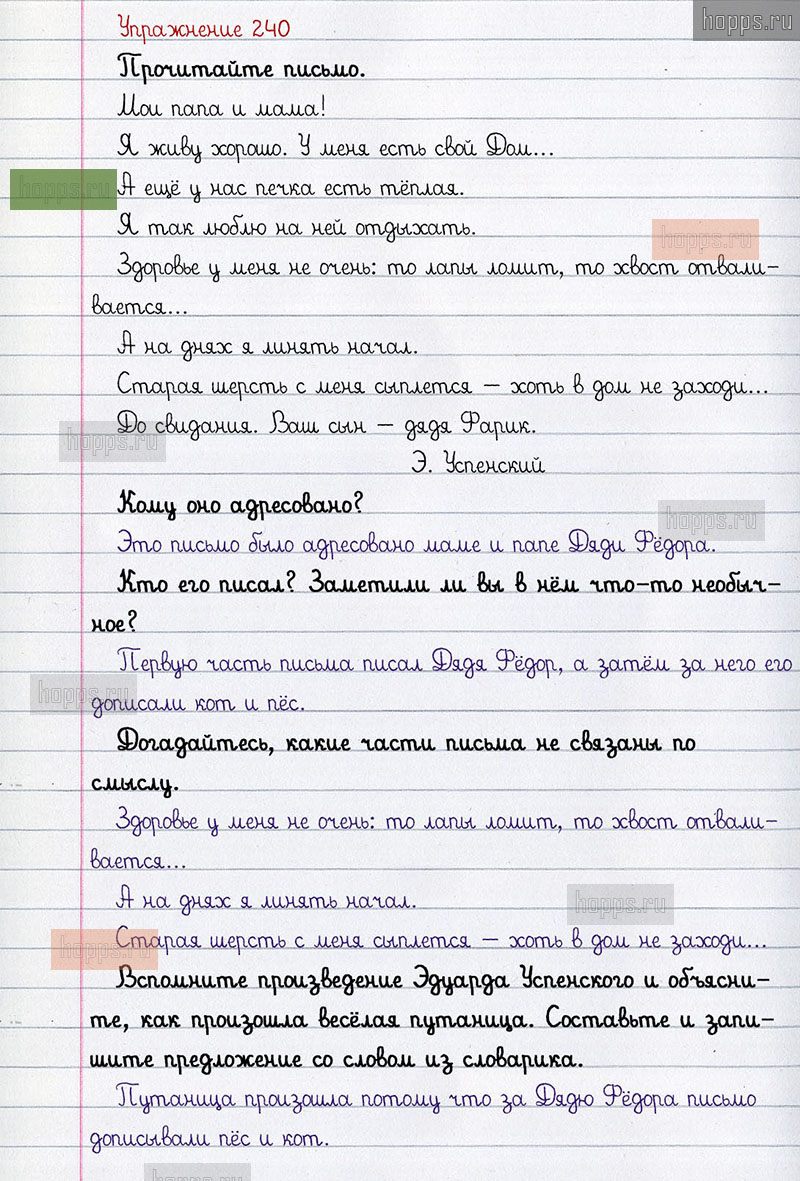 Упражнение 240
hopps.ru
Прочитайте письмо.
Мои папа и мама!
Я живу хорошо. У меня есть свой Дом...
hopps.ru
А ещё у нас печка есть тёплая.
Я так люблю на ней отдыхать.
hopps.ru
Здоровье у меня не очень: то лапы ломит, то хвост отвали-
вается...
А на днях я линять начал.
Старая шерсть с меня сыплется – хоть в дом не заходи...
До свидания. Ваш сын – дядя Фарик.
hopps.ru
Э. Успенский
Кому оно адресовано?
hopps.ru
Это письмо было адресовано маме и папе Дяди Фёдора.
Кто его писал? Заметили ли вы в нём что-то необыч-
ное?
Первую часть письма писал Дядя Фёдор, а затём за него его
hopps.ru
дописали кот и пёс.
Догадайтесь, какие части письма не связаны по
смыслу.
Здоровье у меня не очень: то лапы ломит, то хвост отвали-
вается...
А на днях я линять начал.
hopps.ru
Старая шерсть с меня сыплется – хоть в дом не заходи...
hopps.ru
Вспомните произведение Эдуарда Успенского и объясни-
те, как произошла весёлая путаница. Составьте и запи-
шите предложение со словом из словарика.
Путаница произашла потому что за Дядю Фёдора письмо
дописывали пёс и кот.
hopps.ru